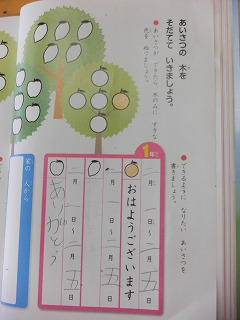 あいさつの 木を
そだてて いきましょう。
●あいさつが できたら、木のみに すきな
色を ぬりましょう。
●できるように なりたい あいさつを
書きましょう。
1年生
二月 一日〜二月 五日
おはようございます
二月 一日〜二月 五日
二月 一日〜二月 五日
ありがとう
家の 人から